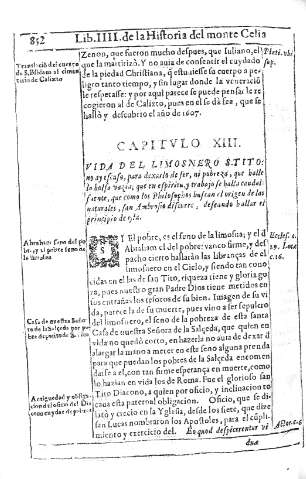 852
Lib. IIII. de la Historia del monte Celia
Zenon, que fueron mucho despues, que Iuliano, el
que la martirizò. Y no auia de consentir el cuydado
de la piedad Christiana, q̃ estuuiesse su cuerpo a pe-
ligro tanto tiempo, y sin lugar donde la veneraciõ
le respetasse: y por aqui parece se puede pensar le re-
cogieron al de Calixto, pues en el se dize, que se
hallò y descubrio el año de 1607.
Translació del cuerpo
de S. Bibiana al cimen
terio de Calixto
CAPITVLO XIII.
VIDA DEL LIMOSNERO S. TITO:
no ay escusa, para dexarlo de ser, ni pobreza, que halle
la bolsa vazia, que en espiritu, y trabajo se halla caudal
fuente, que como los Philosophos buscan el origen de las
naturales, san Ambrosio discurre, desseando hallar el
principio de esta.
Abraham seno del po-
bre, y el pobre seno de
la limosna
EL pobre, es el seno de la limosna; y el de
Abraham el del pobre: vamos firme, y des-
pacho cierto hallarán las libranças de el
limosnero en el Cielo, y siendo tan cono-
cidas en el de san Tito, riqueza tiene y gloria go-
za, pues nuestro gran Padre Dios tiene metidos en
sus entrañas los tesoros de su bien. Imagen de su vi-
da, parece la de su muerte, pues vino a ser sepulcro
del limosnero, el seno de la pobreza de esta santa
Casa de nuestra Señora de la Salçeda, que quien en
vida no quedò corto, en hazerla no auia de dexar de
alargar la mano a meter en este seno alguna prenda
para que puedan los pobres de la Salçeda encomen-
darse a el, con tan firme esperança en muerte, como
lo hazian en vida los de Roma. Fue el glorioso san
Tito Diacono, a quien por oficio, y inclinacion to-
caua esta paternal obligacion. Oficio, que se dila-
tò y crecio en la Yglesia, desde los siete, que dize
san Lucas nombraron los Apostoles, para el cũpli-
miento y exercicio del.
Eccles. c.
29. Luca
c. 16.
Casa de nuestra Seño-
ra de la Salçeda
Antiguedad y obliga-
cion del oficio del Dia
cono cuydar de pobres
Actor. c. 6
dua